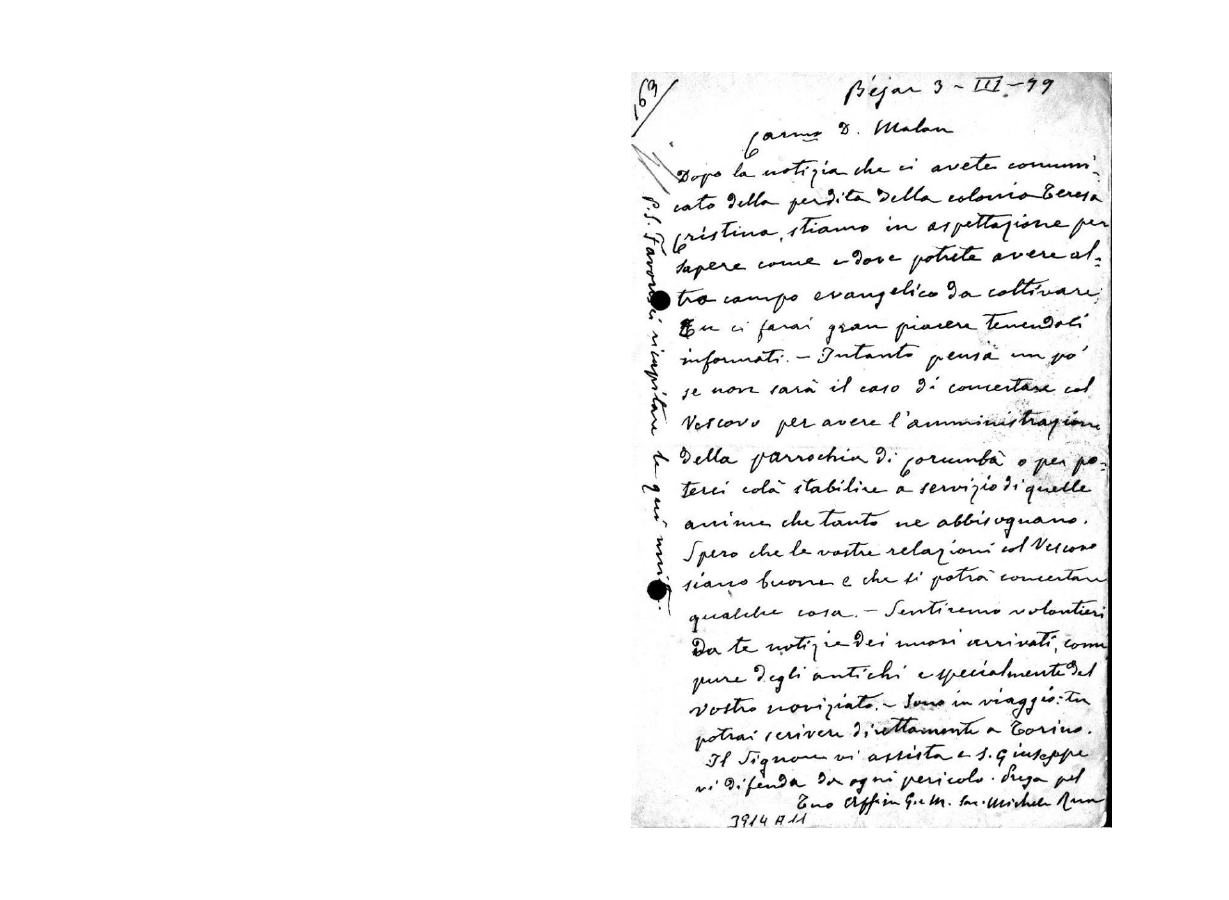 69
Béjar 3 - III - 99
Carmo D. Malan
Dopo la notizia che ci avete comuni-
cato della perdita della colonia Teresa
Cristina, stiamo in aspettazione per
sapere come e dove potrete avere al-
tro campo evangelico da coltivare.
Tu ci farai gran piacere tenendoci
informati. - Intanto pensa un po'
se non sarà il caso di concertare col
Vescovo per avere l'amministrazione
della parrochia di Corumbà o per po-
terci colà stabilire a servizio di quelle
anime che tanto ne abbisognano.
Spero che le vostre relazioni col Vescovo
siano buone e che si potrà concertare
qualche cosa. - Sentiremo volontieri
da te notizie dei nuovi arrivati, come
pure degli antichi e specialmente del
vostro noviziato. - Sono in viaggio: tu
potrai scrivere direttamente a Torino.
Il Signore vi assista e S. Giuseppe
vi difenda da ogni pericolo. Prega pel
Tuo Aff.mo in G. e M. Sac. Michele Rua
P.S. Favorisci ricapitare le qui unite.
3914 A 11